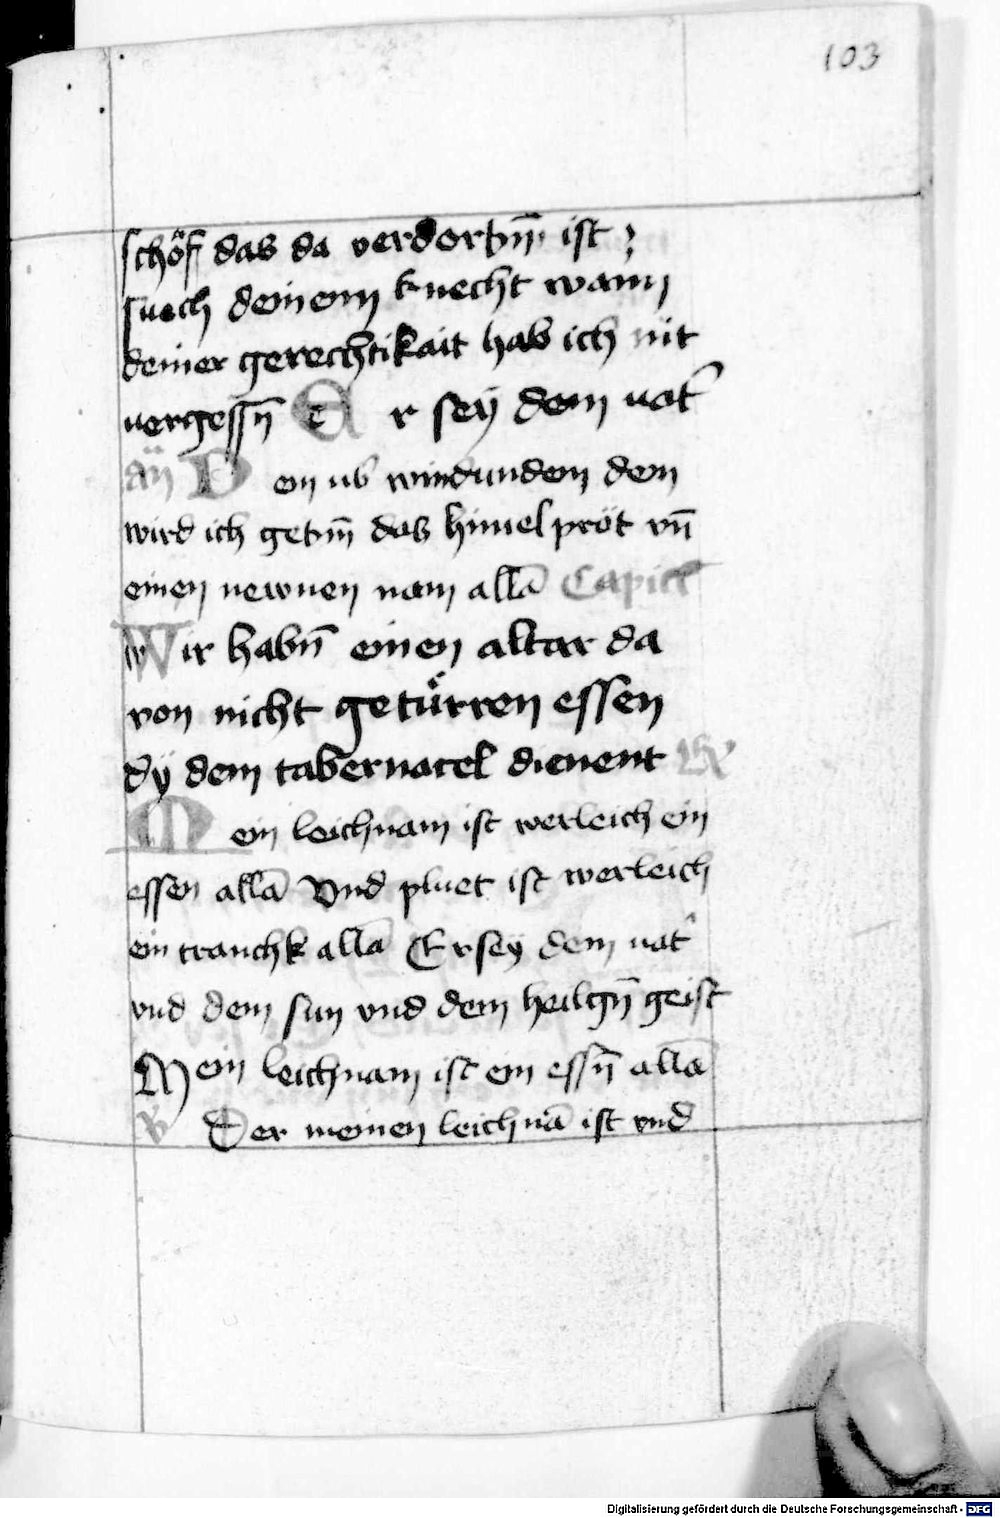 103
schöf das da verdorbm̄ ist ;
suech deinem knecht wann
deiner gerechtikait hab ich nit
vergessn̄ Er sey dem vat̄
an̄ Dem ub̄windundem dem
wird ich gebm̄ das himelpröt vn̄
einen newnen nam allā Capitl̄
Wir habn̄ einen altar da
von nicht getürren essen
dy dem tabernacel dienent
Mein leichnam ist werleich ein
essen allā Vnd pluet ist werleich
ein tranchk allā Er sey dem vat̄
vnd dem sun vnd dem heilgn̄ geist
Mein leichnam ist ein essn̄ allā
V Der meinen leichnā ist vnd
Digitalisierung gefördert durch die Deutsche Forschungsgemeinschaft - DFG